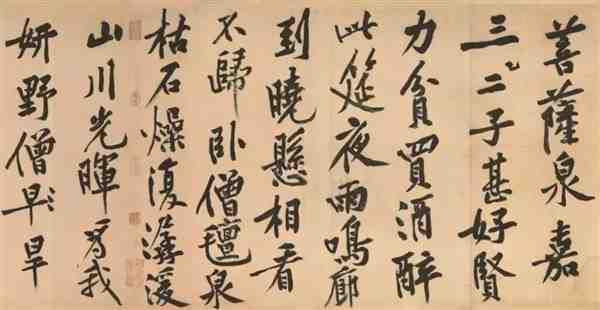 菩薩泉嘉
三二子甚好賢
力貧買酒醉
此筵夜雨鳴廊
到曉懸相看
不歸臥僧氈泉
枯石燥復潺湲
山川光暉為我
妍野僧早旱